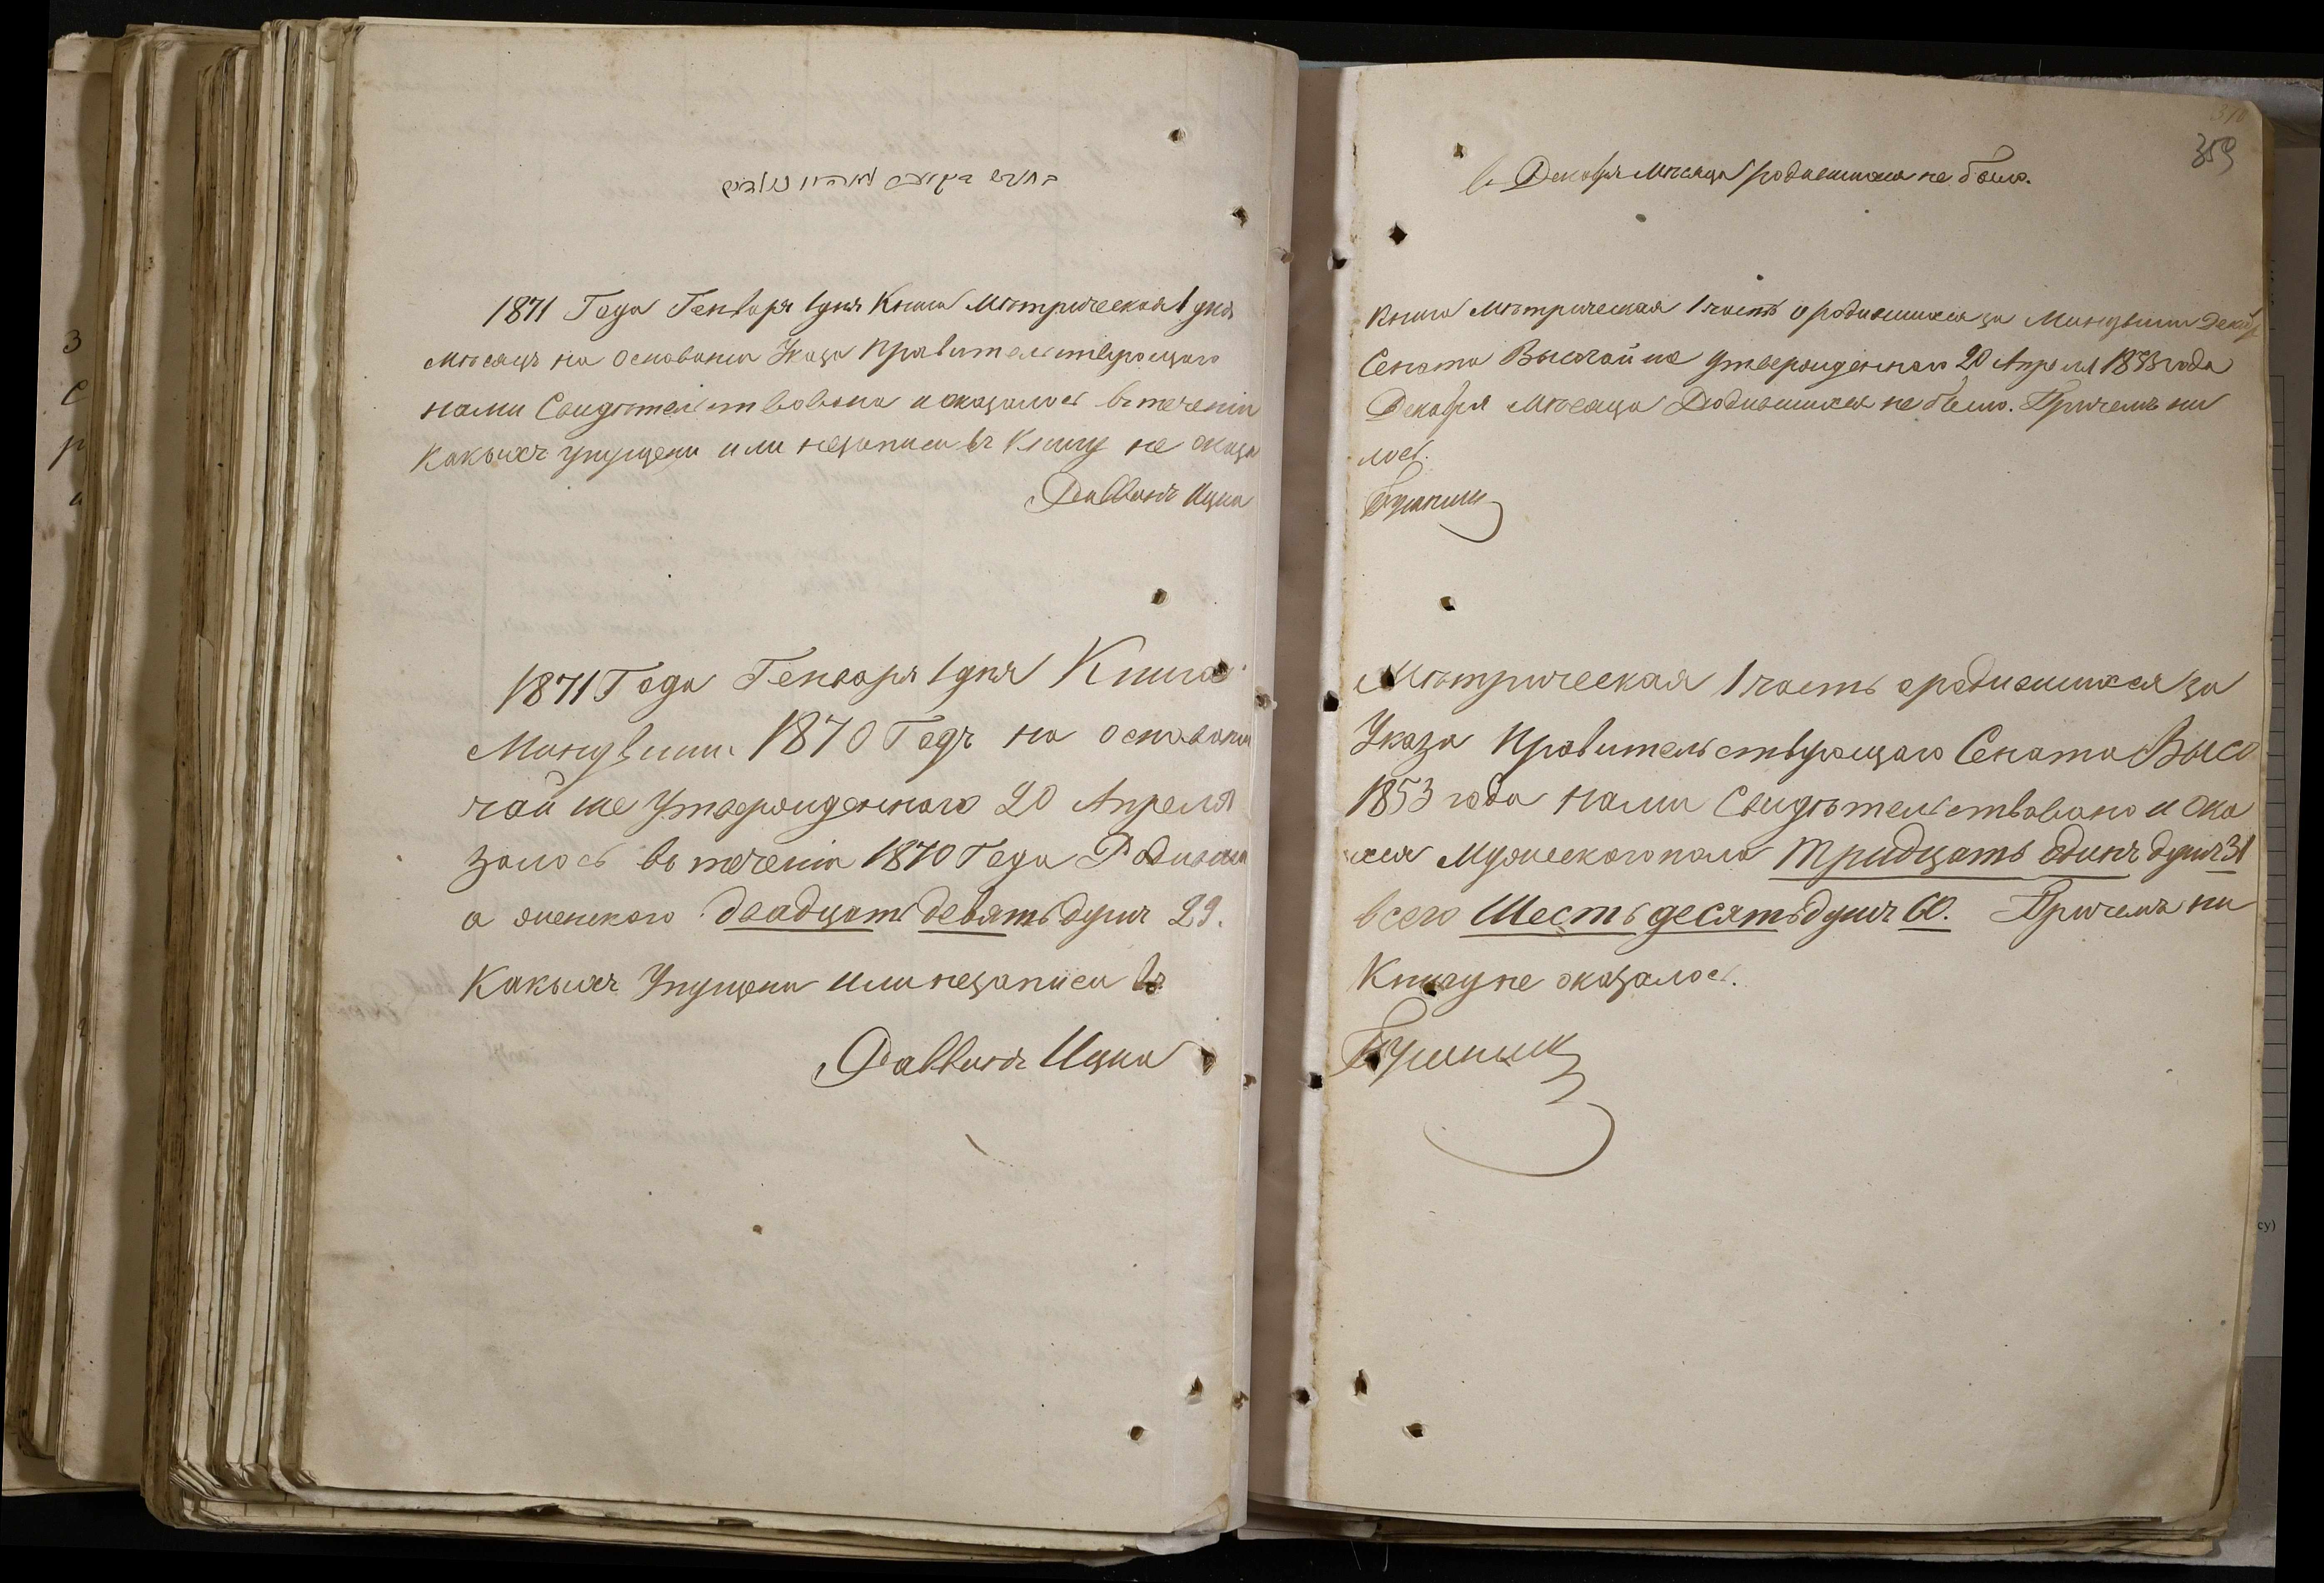 בחודש דעקאבר
1871 Года Генваря 1 дня Книга Метрическая 1 дня
Мѣсяцъ на основаніи Указа Правительствующаго
нами Свидѣтельствована и оказалось втеченіи
Какихъ упущени или незаписи въ Книгу не оказа
Даввидъ Ицка
1871 Года Генваря 1 дня Книга
Минувши 1870 Годъ на основани
чайше Утвержденного 20 Апреля
залось въ теченіи 1870 Года Родивши
а женского двадцать девять душъ 29.
Какихъ Упущени или незаписи въ
Даввидъ Ицка
359
в Декабря Мѣсяца родившихся не было.
Книга Мѣтрическая 1 часть о родившихся за Минувши Декабр
Сената Высочайше утвержденнаго 20 Апреля 1853 года
Декабря Мѣсяца Родившихся не было. Причемъ ни
лось.
Мѣтрическая 1 часть о родившихся за
Указа Правительствующаго Сената Высо
1853 года нами Свидѣтельствовано и ока
хся Мужескаго пола Тридцать один душъ 31
всего Шестьдесятъ душъ 60. Причемъ ни
Книгу не оказалось.